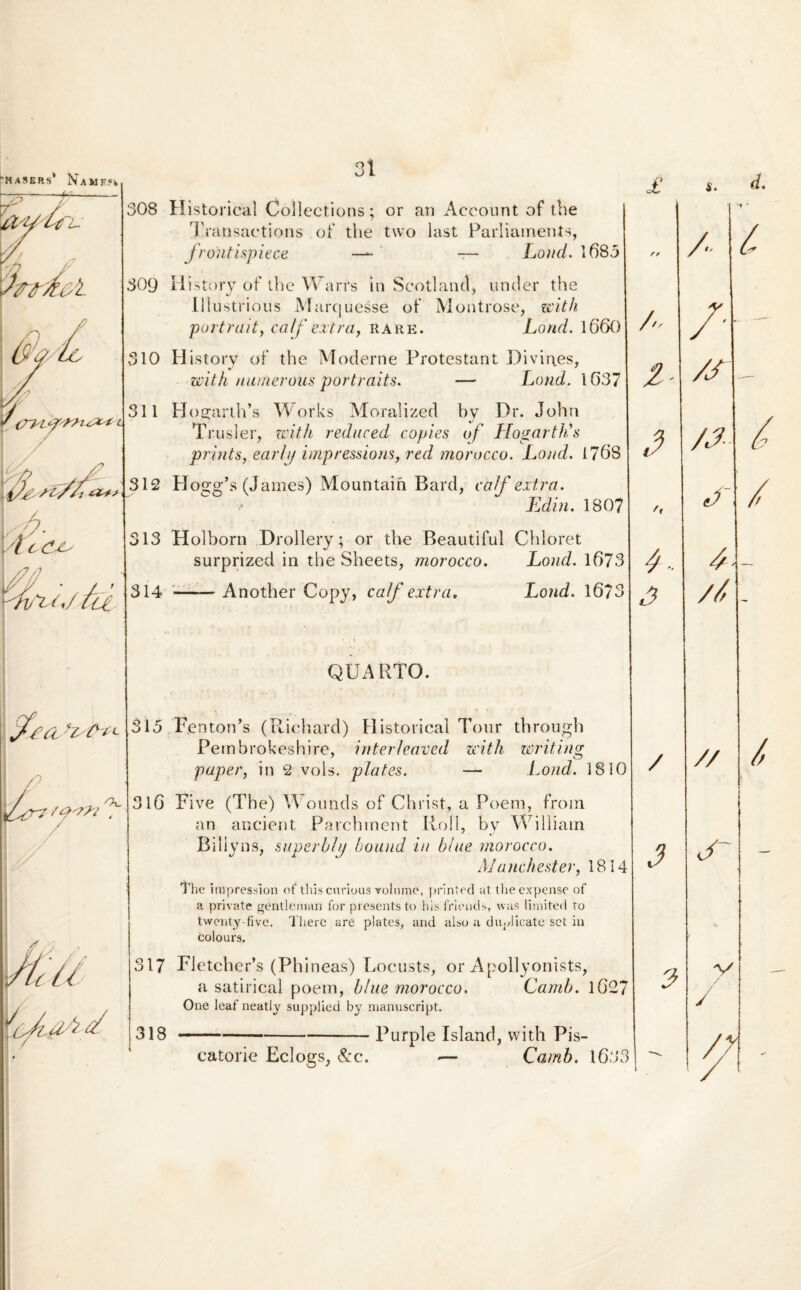 31
CHASERS' NAMES.
£ s. d.
308 Historical Collections; or an Account of the
Transactions of the two last Parliaments,
frontispiece — — Lond. 1685
309 History of the Warrs in Scotland, under the
Illustrious Marquesse of Montrose, with
portrait, calf extra, RARE. Lond. 1660
310 History of the Moderne Protestant Divines,
with numerous portraits. — Lond. 1637
311 Hogarth's Works Moralized by Dr. John
Trusler, with reduced copies of Hogarth's
prints, early impressions, red morocco. Lond. 1768
312 Hogg's (James) Mountain Bard, calf extra.
Edin. 1807
313 Holborn Drollery; or the Beautiful Chloret
surprized in the Sheets, morocco. Lond. 1673
314 —— Another Copy, calf extra. Lond. 1673
QUARTO.
315 Fenton's (Richard) Historical Tour through
Pembrokeshire, interleaved with writing
paper, in 2 vols. plates. — Lond. 1810
316 Five (The) Wounds of Christ, a Poem, from
an ancient Parchment Roll, by William
Billyns, superbly bound in blue morocco.
Manchester, 1814
The impression of this curious volume, printed at the expense of
a private gentleman for presents to his friends, was limited to
twenty-five. There are plates, and also a duplicate set in
colours.
317 Fletcher's (Phineas) Locusts, or Apollyonists,
a satirical poem, blue morocco. Camb. 1627
One leaf neatly supplied by manuscript.
318 ———— Purple Island, with Pis-
catorie Eclogs, &c. — Camb. 1633